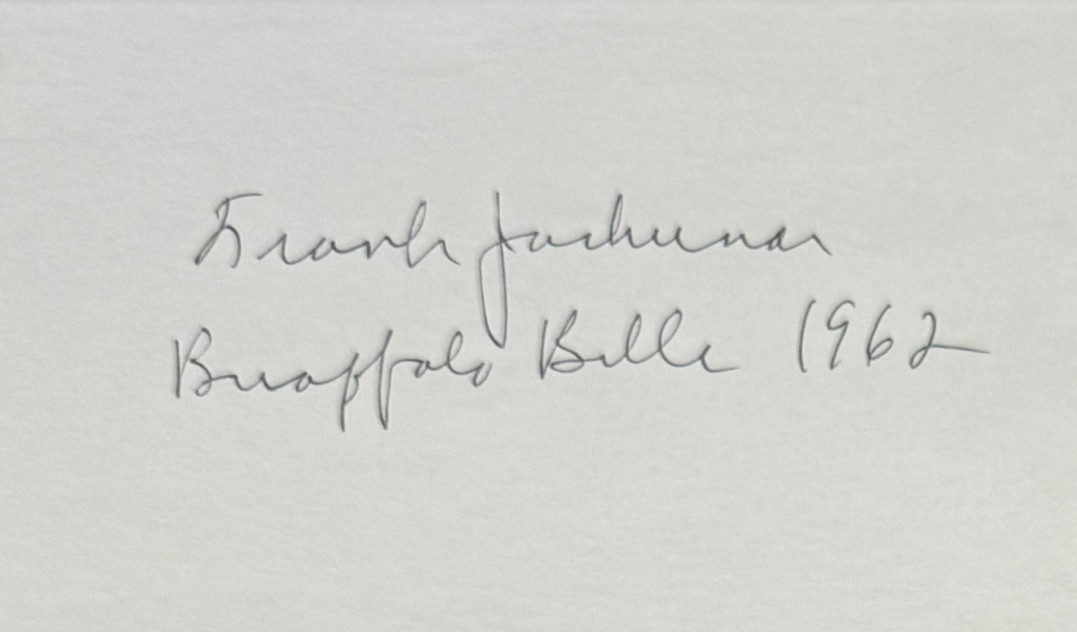 Frank Jackunas
Buaffalo Bills 1962